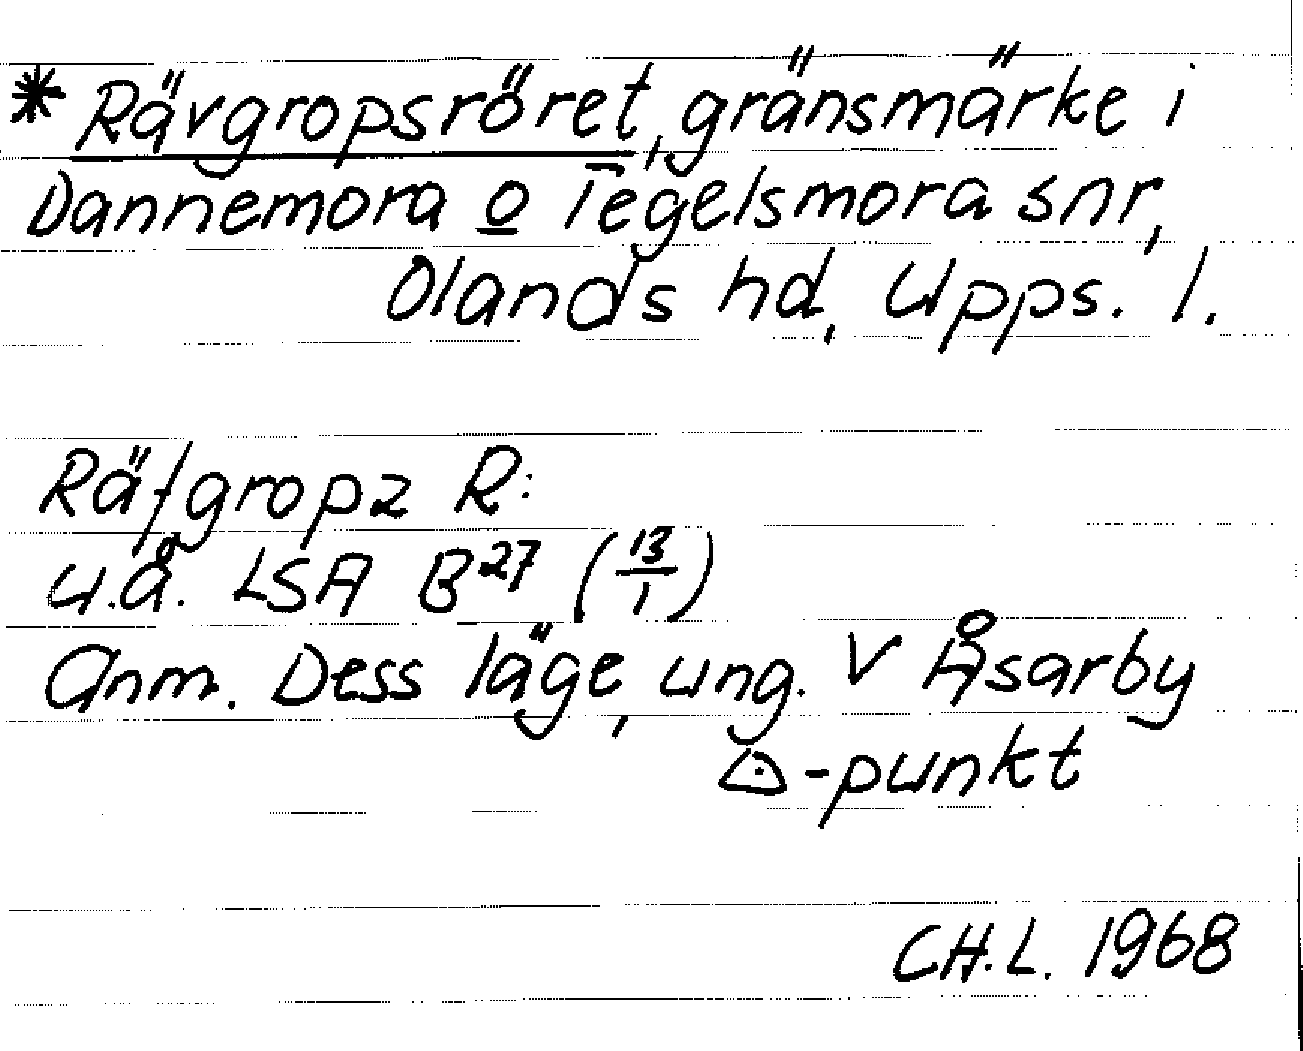 * Rävgropsröret, gränsmärke i
Dannemora o Tegelsmora snr,
Olands hd, Upps. l.
Räfgropz R:
u.å. LSA B27 (13/1)
Anm. Dess läge, ung. V Åsarby
△-punkt
CH.L. 1968